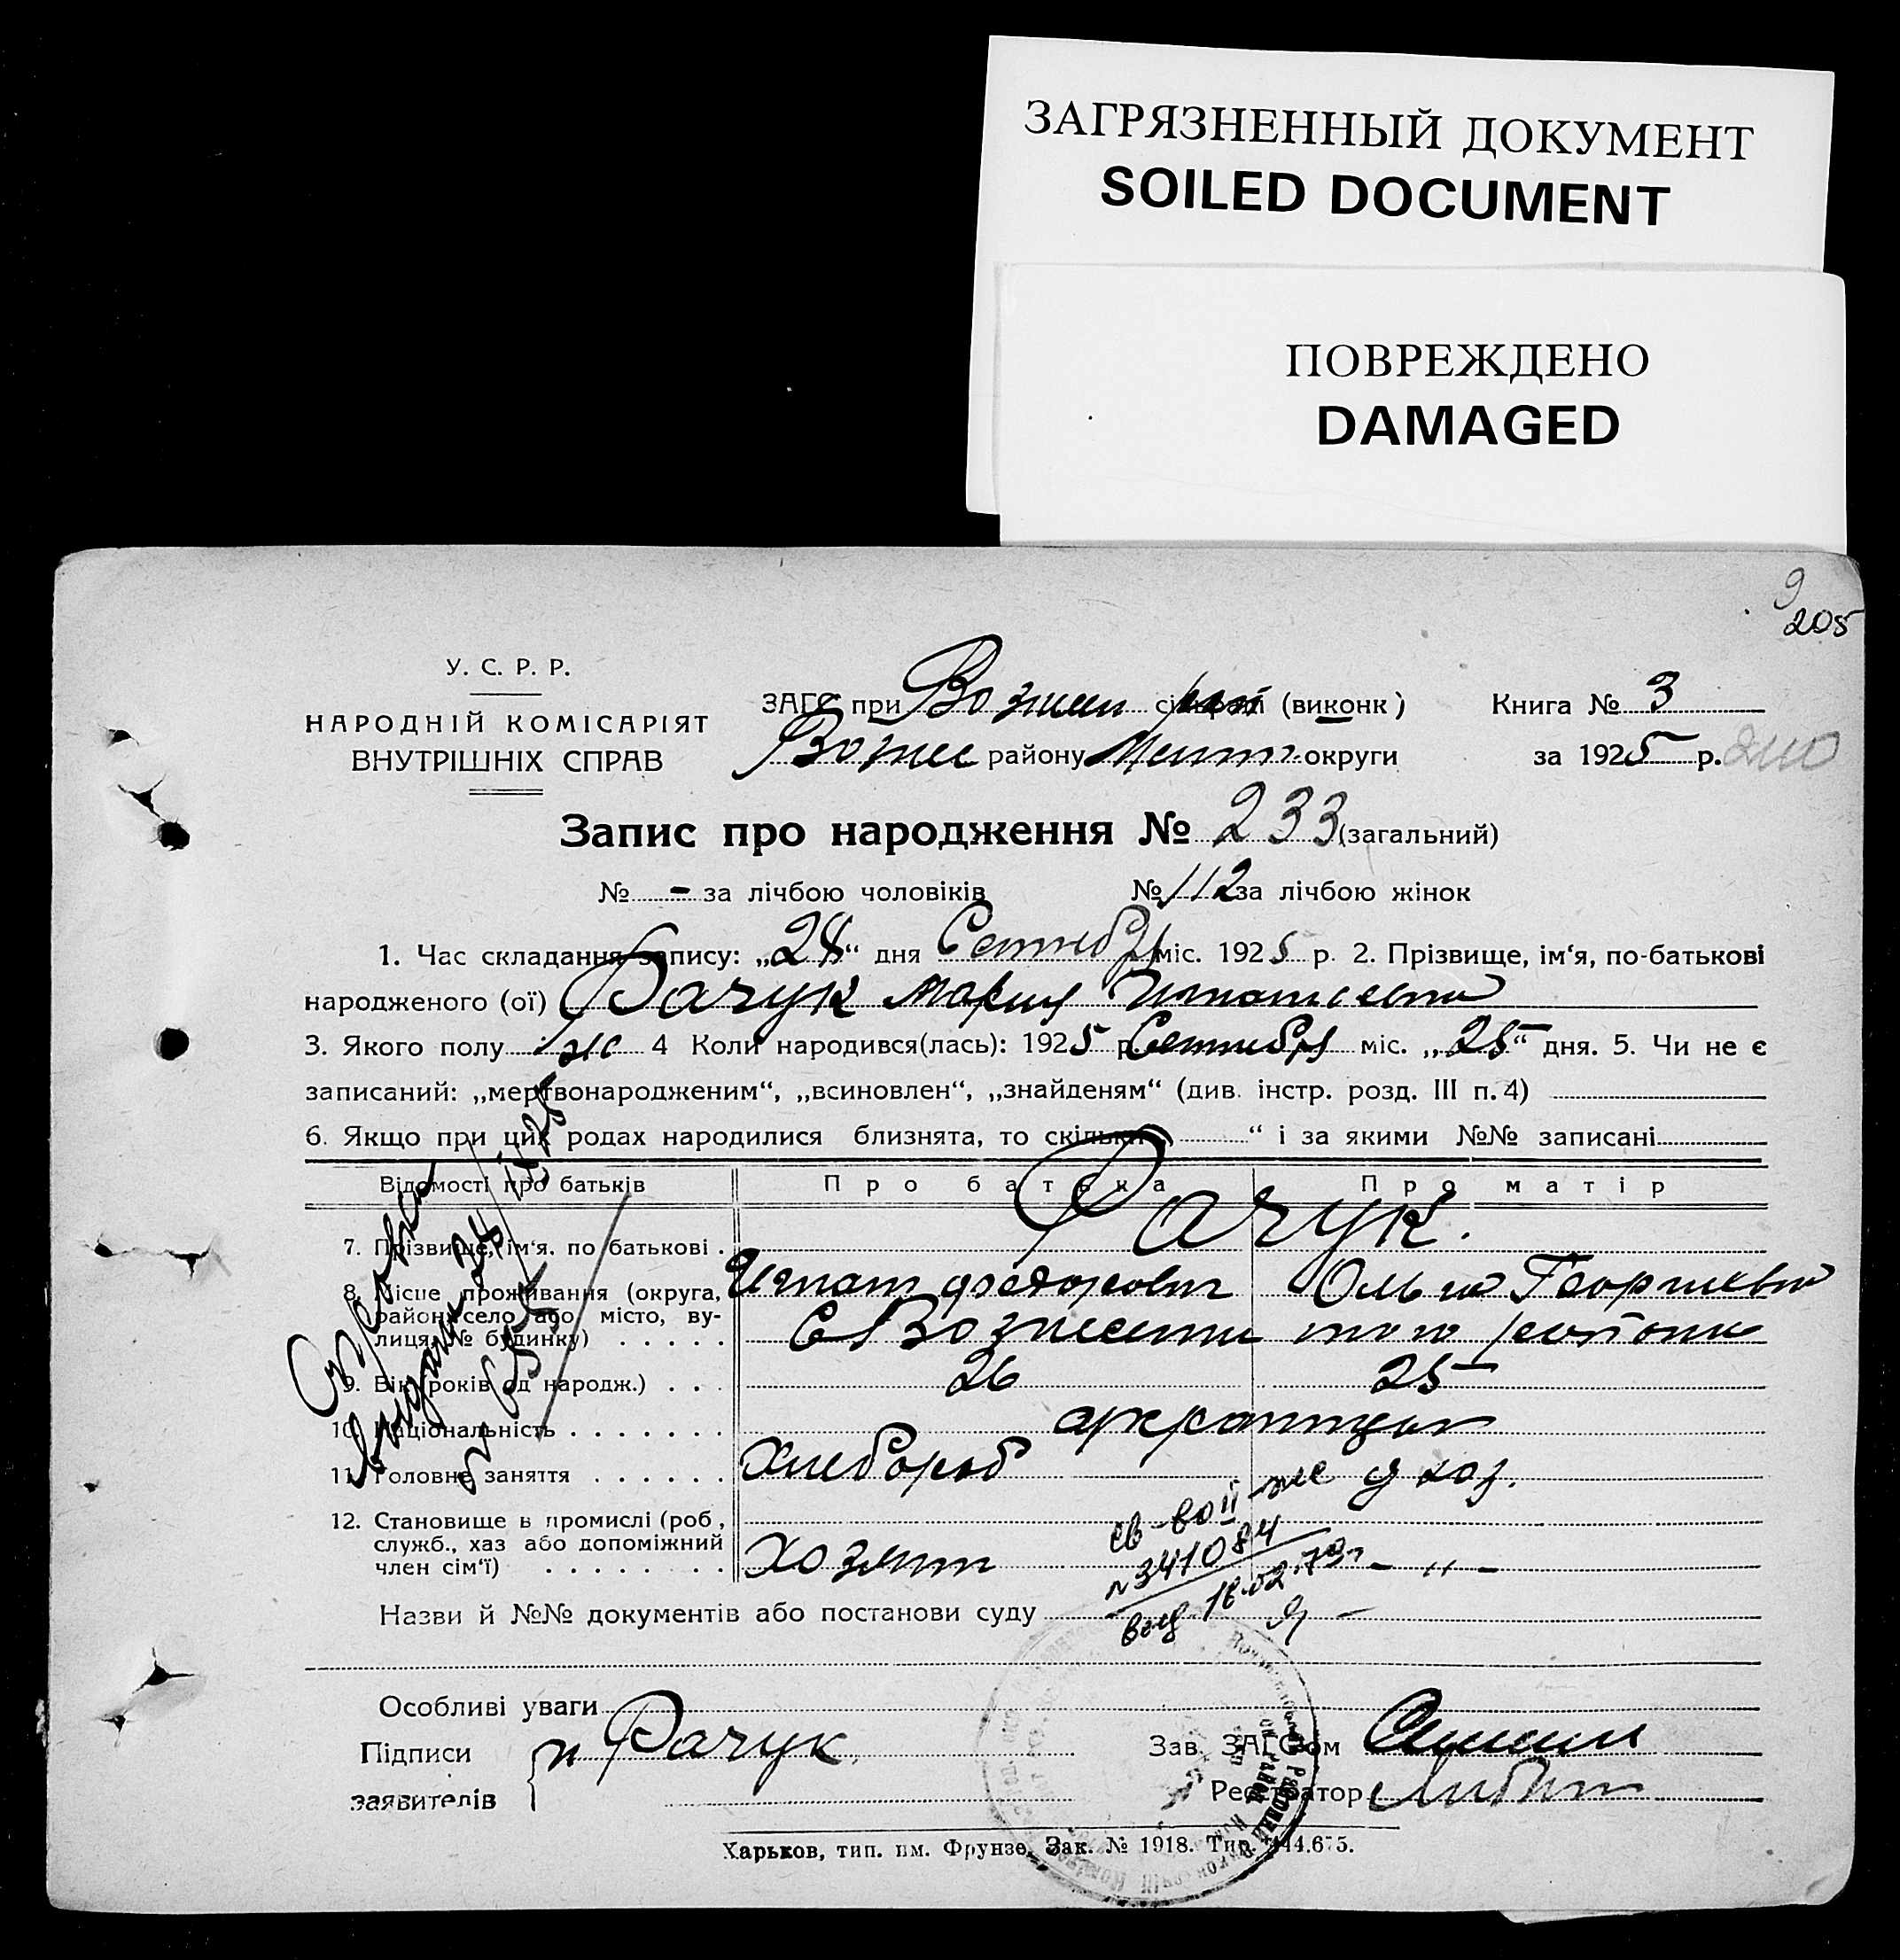 ЗАГРЯЗНЕННЫЙ ДОКУМЕНТ
SOILED DOCUMENT
ПОВРЕЖДЕНО
DAMAGED
9
205
У. С. Р. Р.
НАРОДНІЙ КОМІСАРІЯТ
ВНУТРІШНІХ СПРАВ
ЗАГС при (виконк) Книга № 3
району округи за 1925 р. 210
Запис про народження № 233 (загальний)
№ - за лічбою чоловіків № 112 за лічбою жінок
1. Час складання запису: „28“ дня Сентября міс. 1925 р. 2. Прізвище, ім‘я, по-батькові
народженого (ої) Рачук Мария Игнатьевна
3. Якого полу ж 4 Коли народився(лась): 1925 р. Сентября міс. „25“ дня. 5. Чи не є
записаний: „мертвонародженим“, „всиновлен“, „знайденям“ (див. інстр. розд. III п. 4)
6. Якщо при цих родах народилися близнята, то скільки „ “ і за якими №№ записані
Відомості про батьків Про батька Про матір
7. Прізвище, ім‘я. по батькові . Рачук.
Игнат Федорович Ольга Георгиевна
8. Місце проживання (округа,
район, село або місто, ву-
лиця, № будинку) . . . . .
9. Вік (років од народж.) . . . 26 25
10. Національність . . . . . . .
11. Головне заняття . . . . . . Хлебороб
св-во II-же
12. Становище в промислі (роб.,
служб., хаз або допоміжний
член сім‘ї) . . . . . . . . Хозяин - „ -
№ 341084
18.02.73г
Назви й №№ документів або постанови суду
Справка
выдана 28/IX 25
Особливі уваги
Підписи
заявителів Рачук
Зав. ЗАГСом
Реєстратор
Харьков, тип. им. Фрунзе. Зак. № 1918. Тир. 444.675.